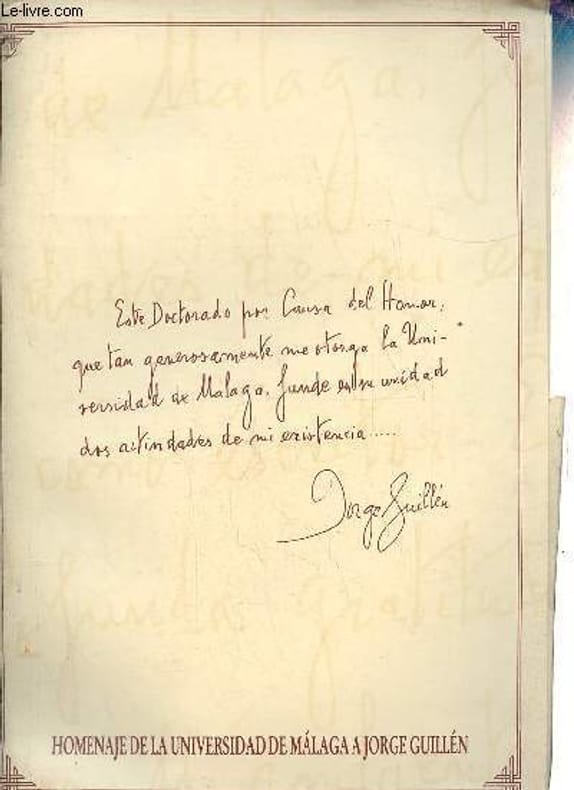 Le-livre.com
de Malaga, 
Este Doctorado por Causa del Honor,
que tan generosamente me otorga la Uni-
versidad de Malaga, funde en su unidad
dos actividades de mi existencia.....
Jorge Guillén
gratitu
HOMENAJE DE LA UNIVERSIDAD DE MÁLAGA A JORGE GUILLÉN